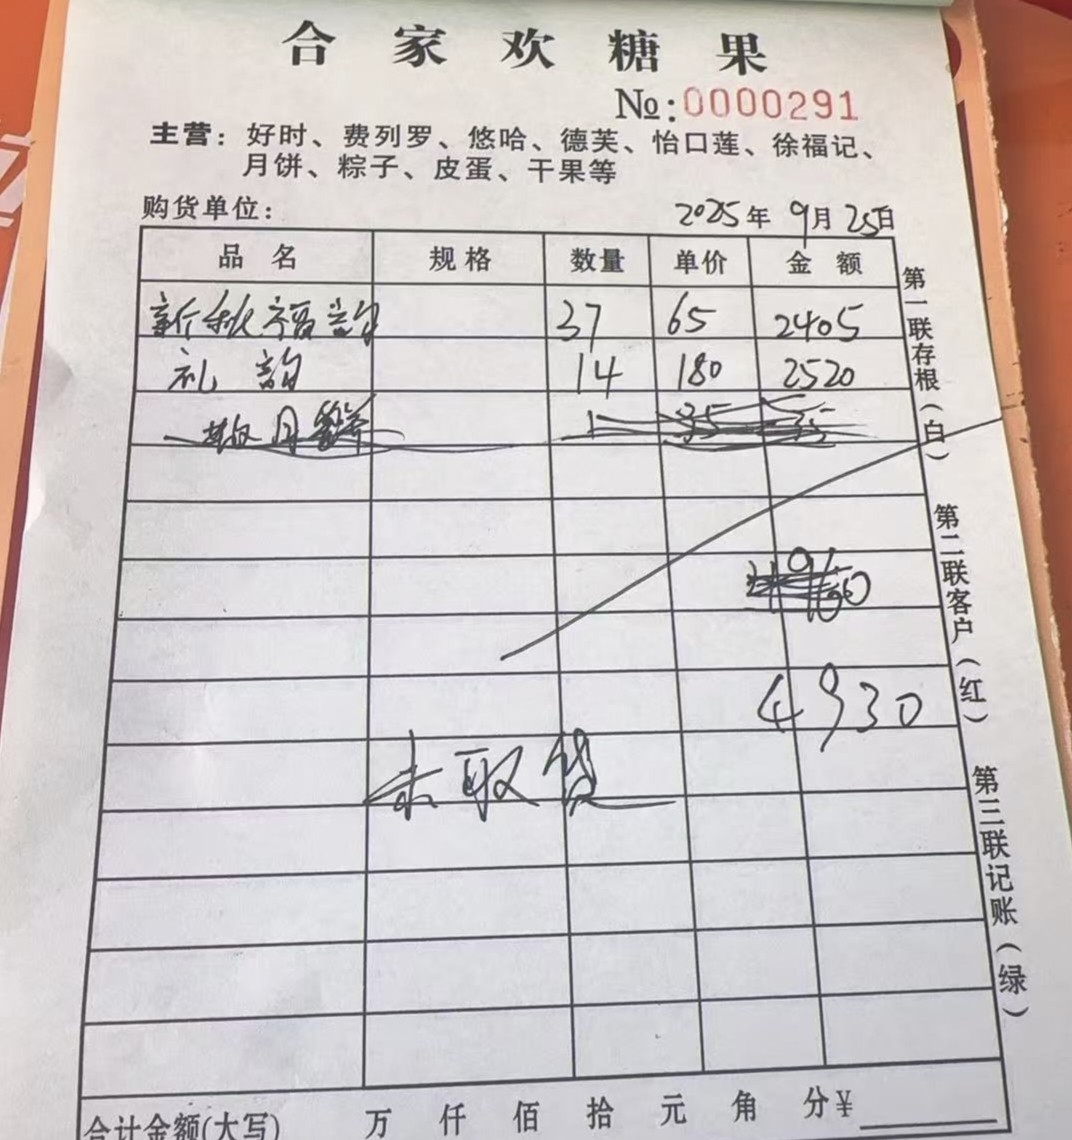 合家欢糖果
№:0000291
主营：好时、费列罗、悠哈、德芙、怡口莲、徐福记、
月饼、粽子、皮蛋、干果等
购货单位： 2025年 9月 25日
品名 规格 数量 单价 金额
新秋福韵 37 65 2405
礼韵 14 180 2520
月饼 1 35 35
4930
未取货
合计金额(大写) 万 仟 佰 拾 元 角 分¥
第一联存根(白)
第二联客户(红)
第三联记账(绿)